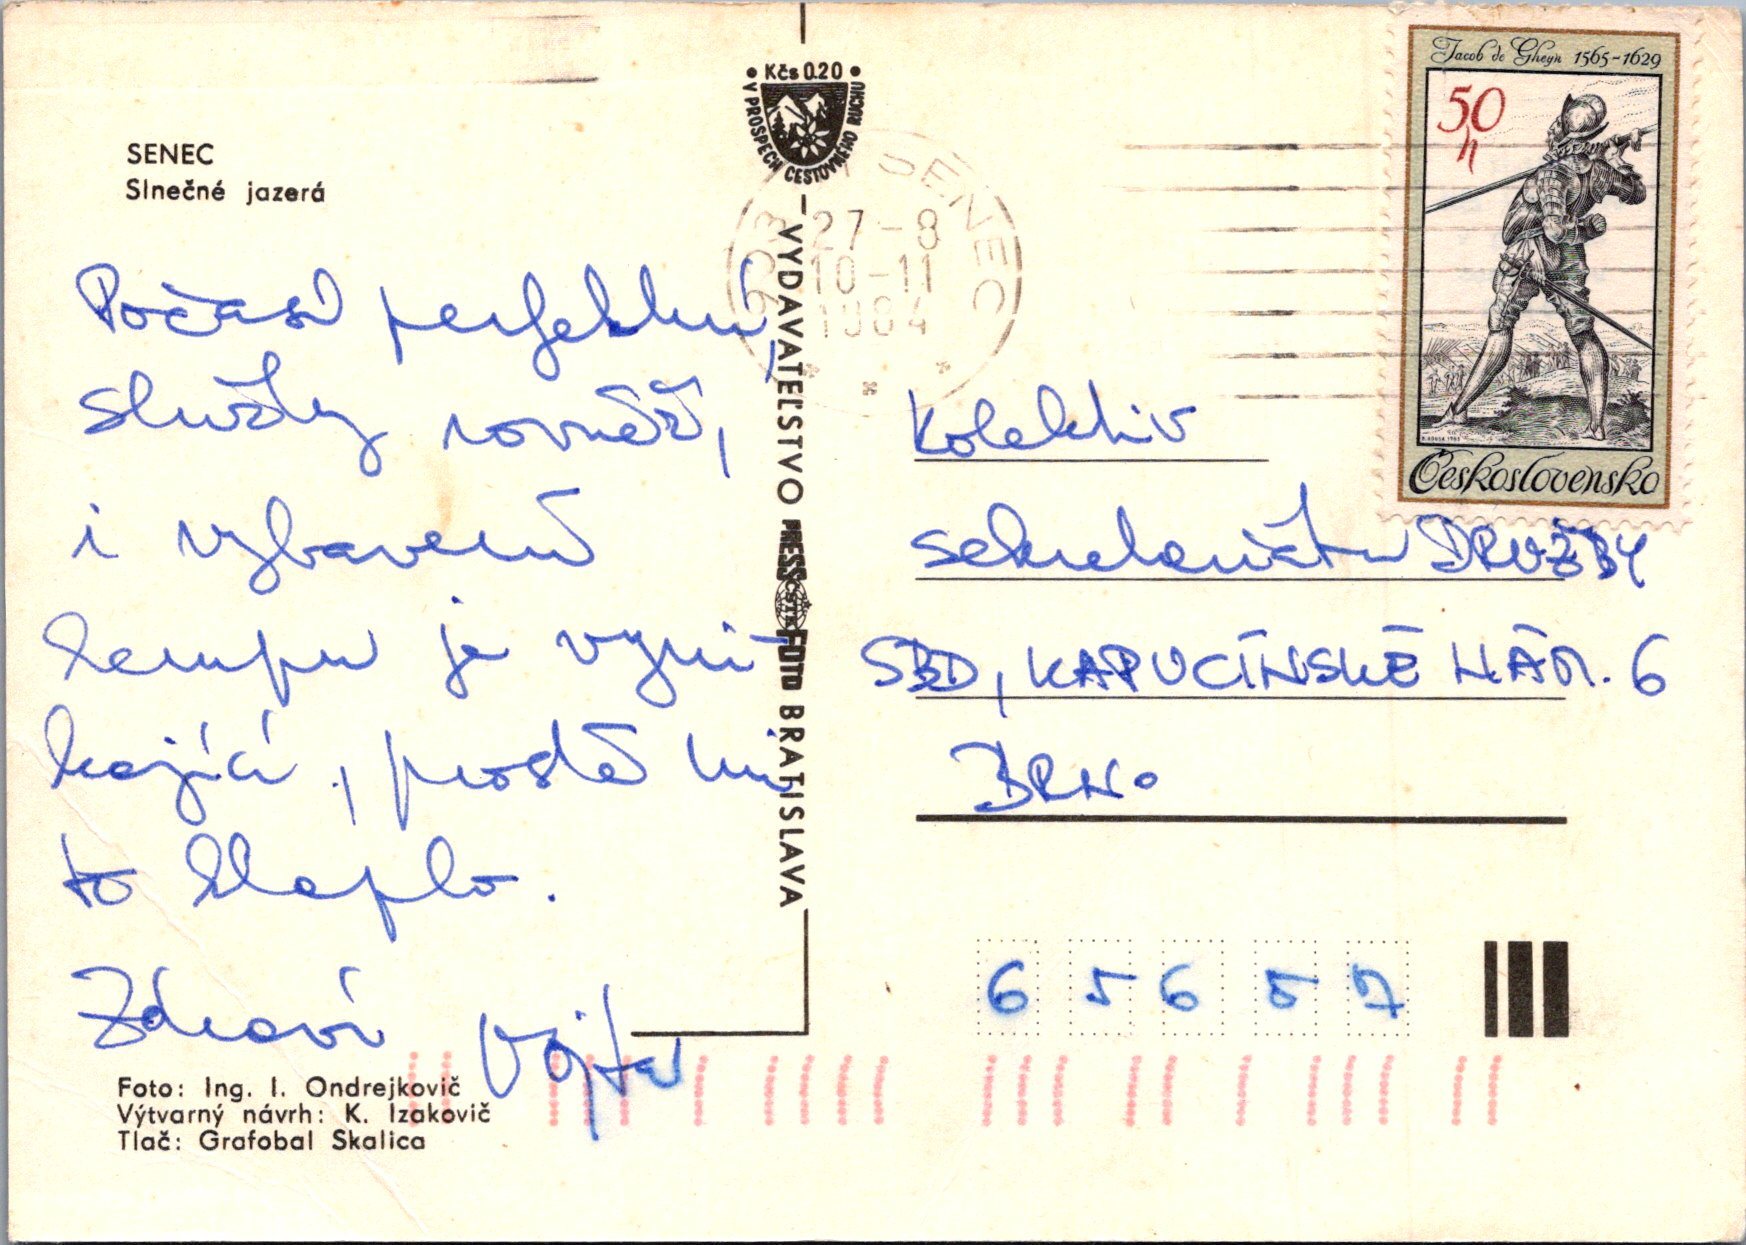 SENEC
Slnečné jazerá
Počasí perfektní,
služby rovněž,
i vybavení
kempu je vyni-
kající, prostě mi
to klaplo.
Zdraví Vojta
Foto: Ing. I. Ondrejkovič
Výtvarný návrh: K. Izakovič
Tlač: Grafobal Skalica
• Kčs 0.20 •
V PROSPECH CESTOVNÉHO RUCHU
VYDAVATEĽSTVO PRESSFOTO BRATISLAVA
ČSTK
SENEC
27-8
10-11
1984
Jacob de Gheyn 1565-1629
50 h
Československo
Kolektiv
sekretariátu DRUŽBY
SBD, KAPUCÍNSKÉ NÁM. 6
BRNO
6 5 6 5 7